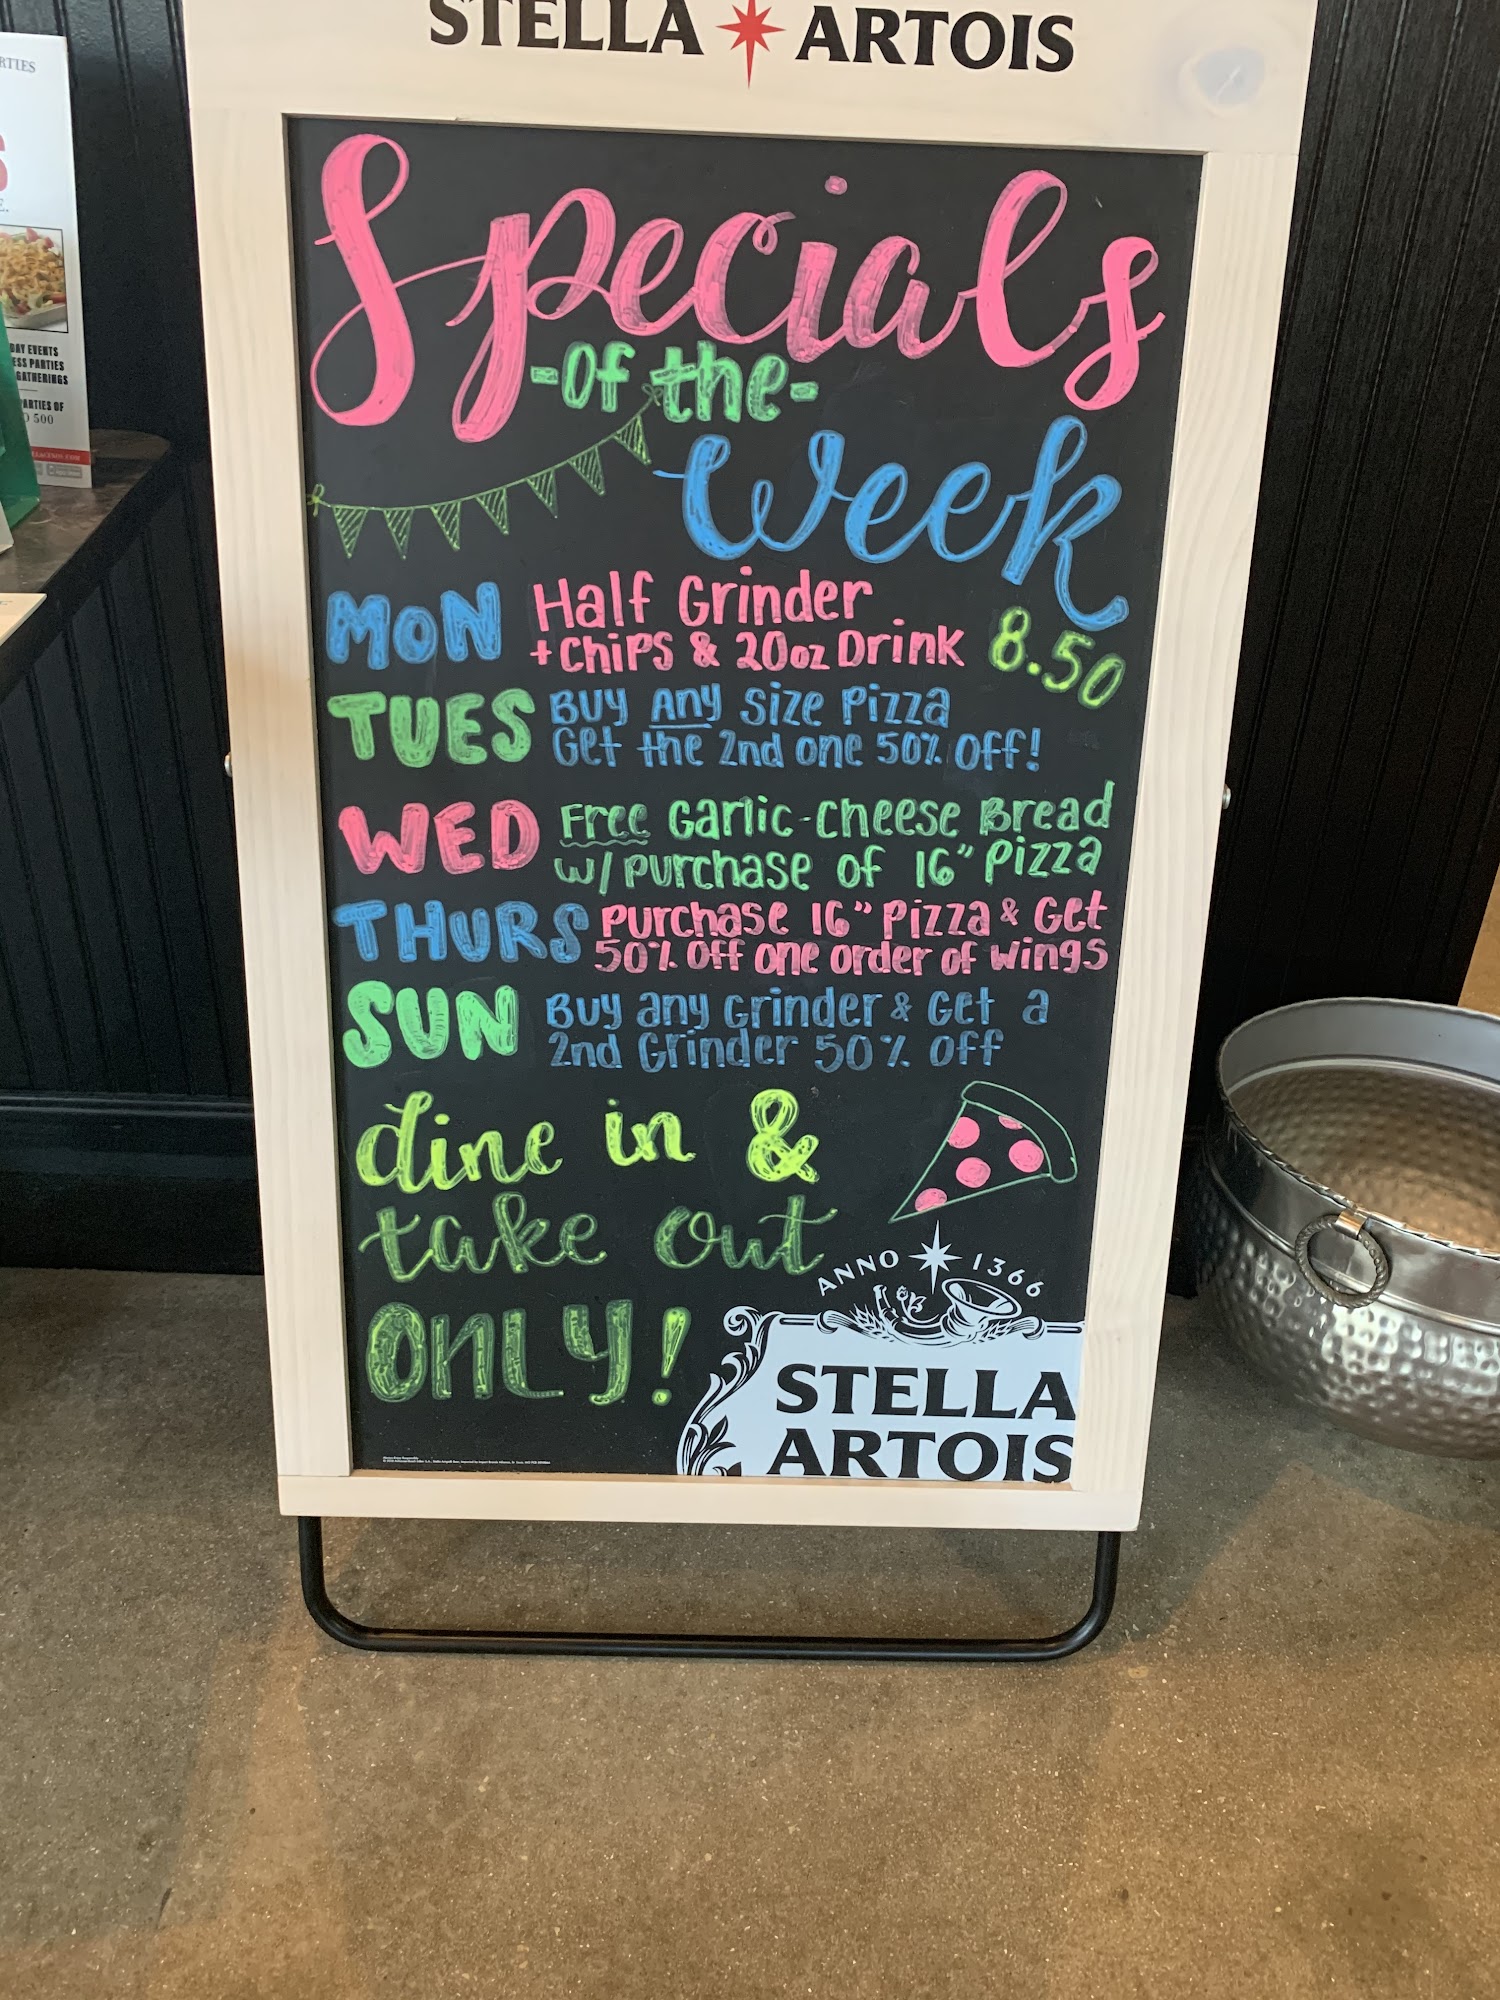 STELLA ARTOIS
Specials
-of the-
Week
MON Half Grinder
+ Chips & 20oz Drink 8.50
TUES Buy Any Size Pizza
Get the 2nd one 50% off!
WED Free Garlic-Cheese Bread
w/ purchase of 16" Pizza
THURS Purchase 16" Pizza & Get
50% off one order of wings
SUN Buy any Grinder & Get a
2nd Grinder 50% off
dine in &
take out
ONLY!
ANNO 1366
STELLA
ARTOIS
RTIES
S
E.
DAY EVENTS
ESS PARTIES
GATHERINGS
ARTIES OF
O 500